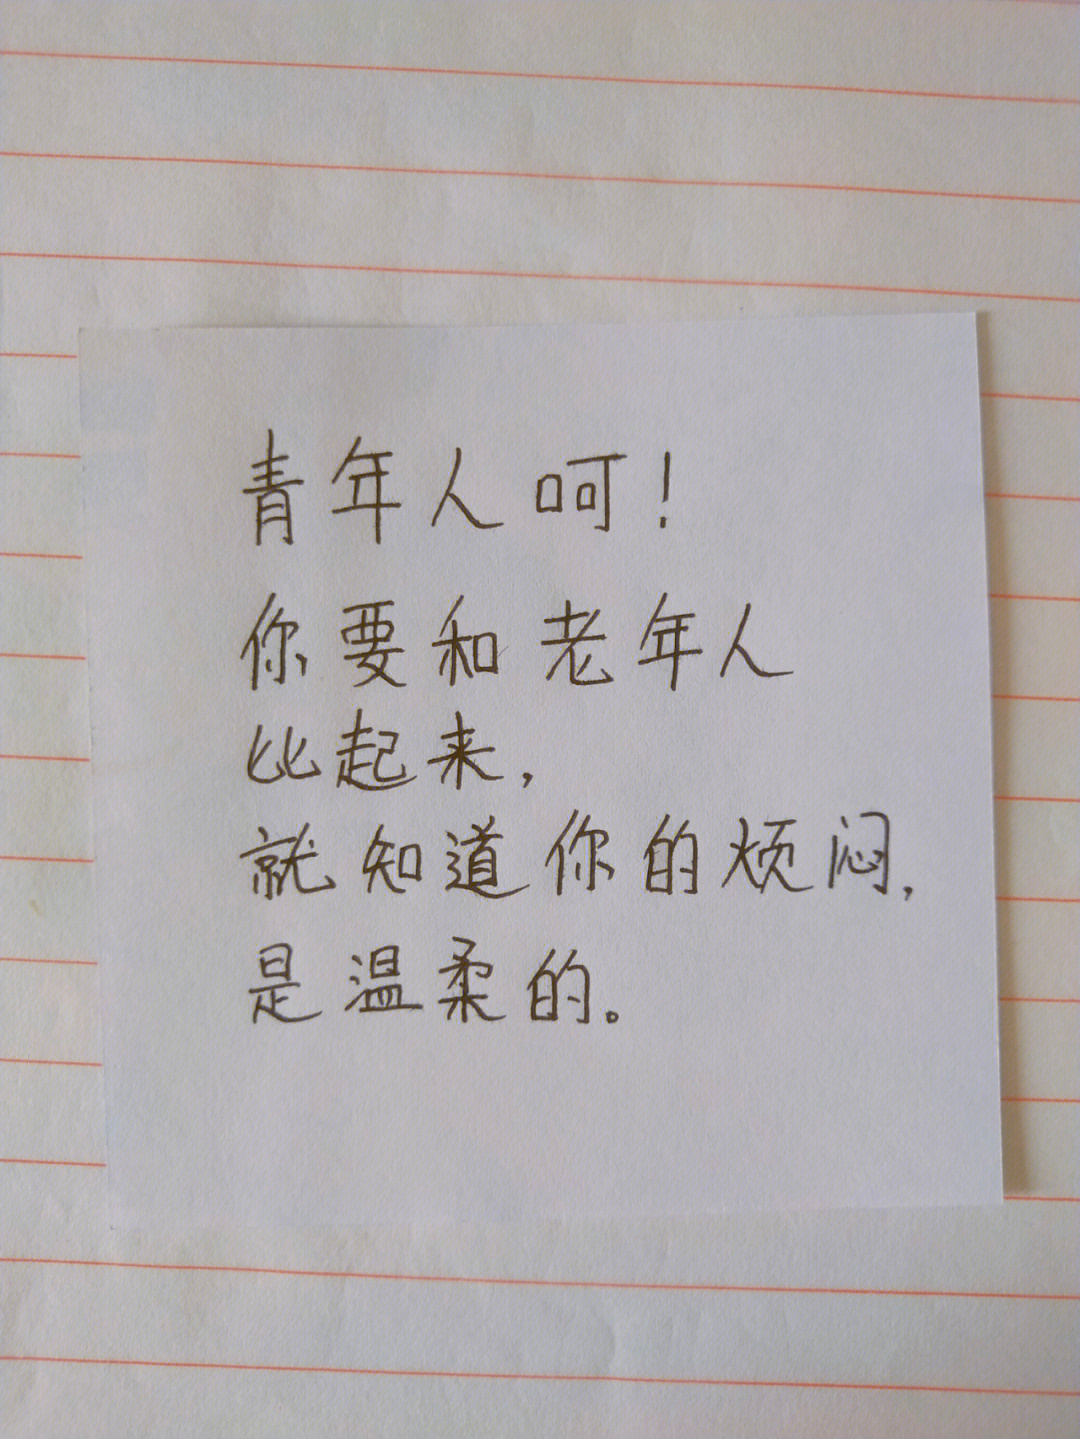 青年人呵！
你要和老年人
比起来，
就知道你的烦闷，
是温柔的。